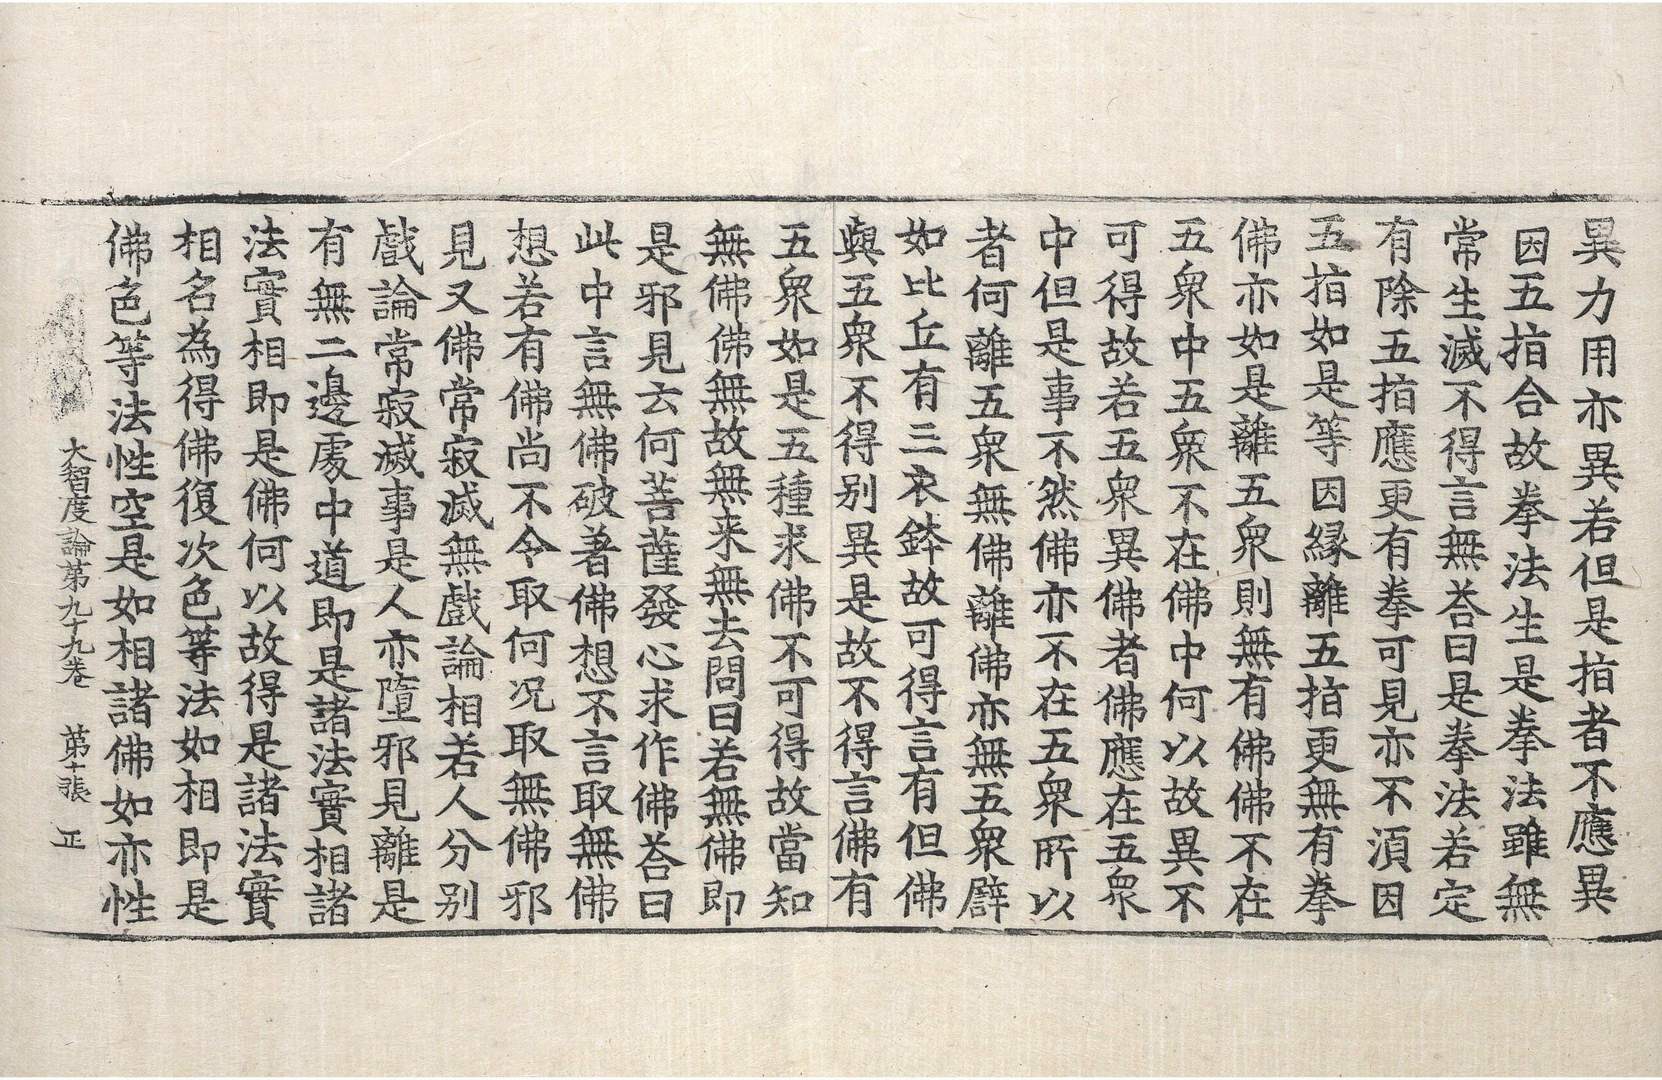 異力用亦異若但是指者不應異
因五指合故拳法生是拳法雖無
常生滅不得言無荅曰是拳法若定
有除五指應更有拳可見亦不湏因
五指如是等因緣離五指更無有拳
佛亦如是離五衆則無有佛佛不在
五衆中五衆不在佛中何以故異不
可得故若五衆異佛者佛應在五衆
中但是事不然佛亦不在五衆所以
者何離五衆無佛離佛亦無五衆譬
如比丘有三衣鉢故可得言有但佛
與五衆不得別異是故不得言佛有
五衆如是五種求佛不可得故當知
無佛佛無故無来無去問曰若無佛即
是邪見云何菩薩發心求作佛荅曰
此中言無佛破著佛想不言取無佛
想若有佛尚不令取何况取無佛邪
見又佛常寂滅無戲論相若人分別
戲論常寂滅事是人亦墮邪見離是
有無二邊處中道即是諸法實相諸
法實相即是佛何以故得是諸法實
相名為得佛復次色等法如相即是
佛色等法性空是如相諸佛如亦性
大智度論第九十九卷 第十張 正